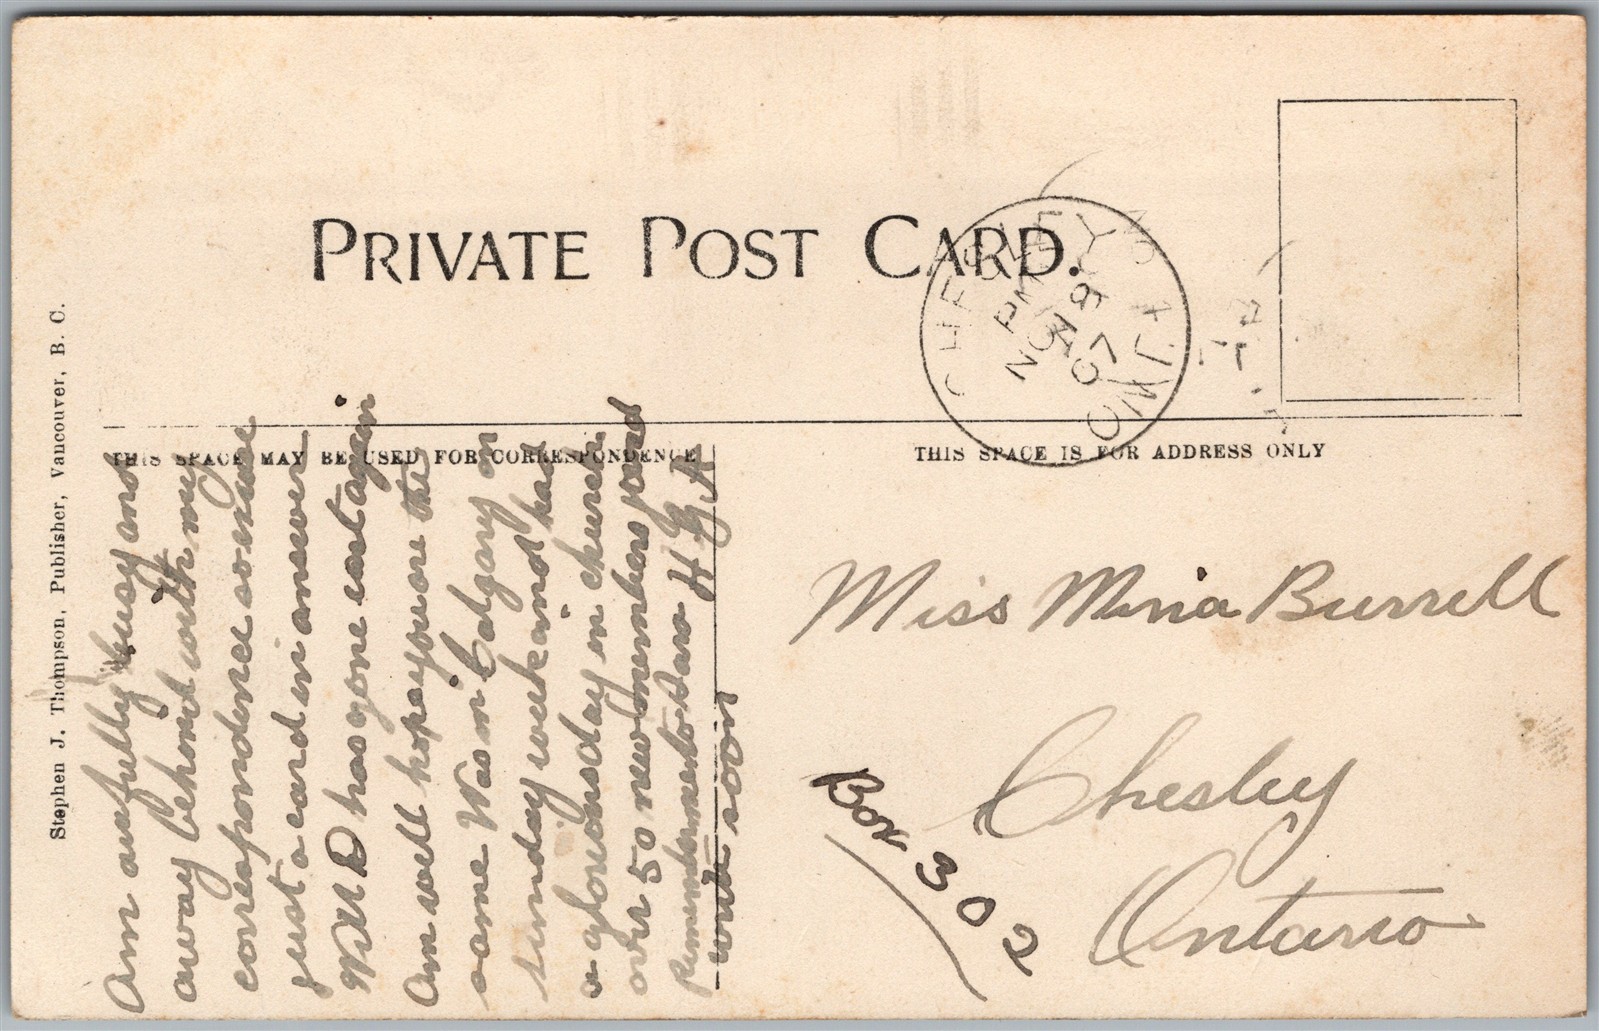 PRIVATE POST CARD.
CHESLEY
PM
NO 19
07
ONT
Stephen J. Thompson, Publisher, Vancouver, B. C.
THIS SPACE MAY BE USED FOR CORRESPONDENCE
THIS SPACE IS FOR ADDRESS ONLY
Am awfully busy and
away behind with my
correspondence so excuse
just a card in answer
Will D has gone east again
Am well hope you are the
same Was in Calgary on
Sunday week and had
a glorious day in church
over 50 new members joined
Remember me to H G A
write soon
Miss Mina Burrell
Chesley
Ontario
Box 302